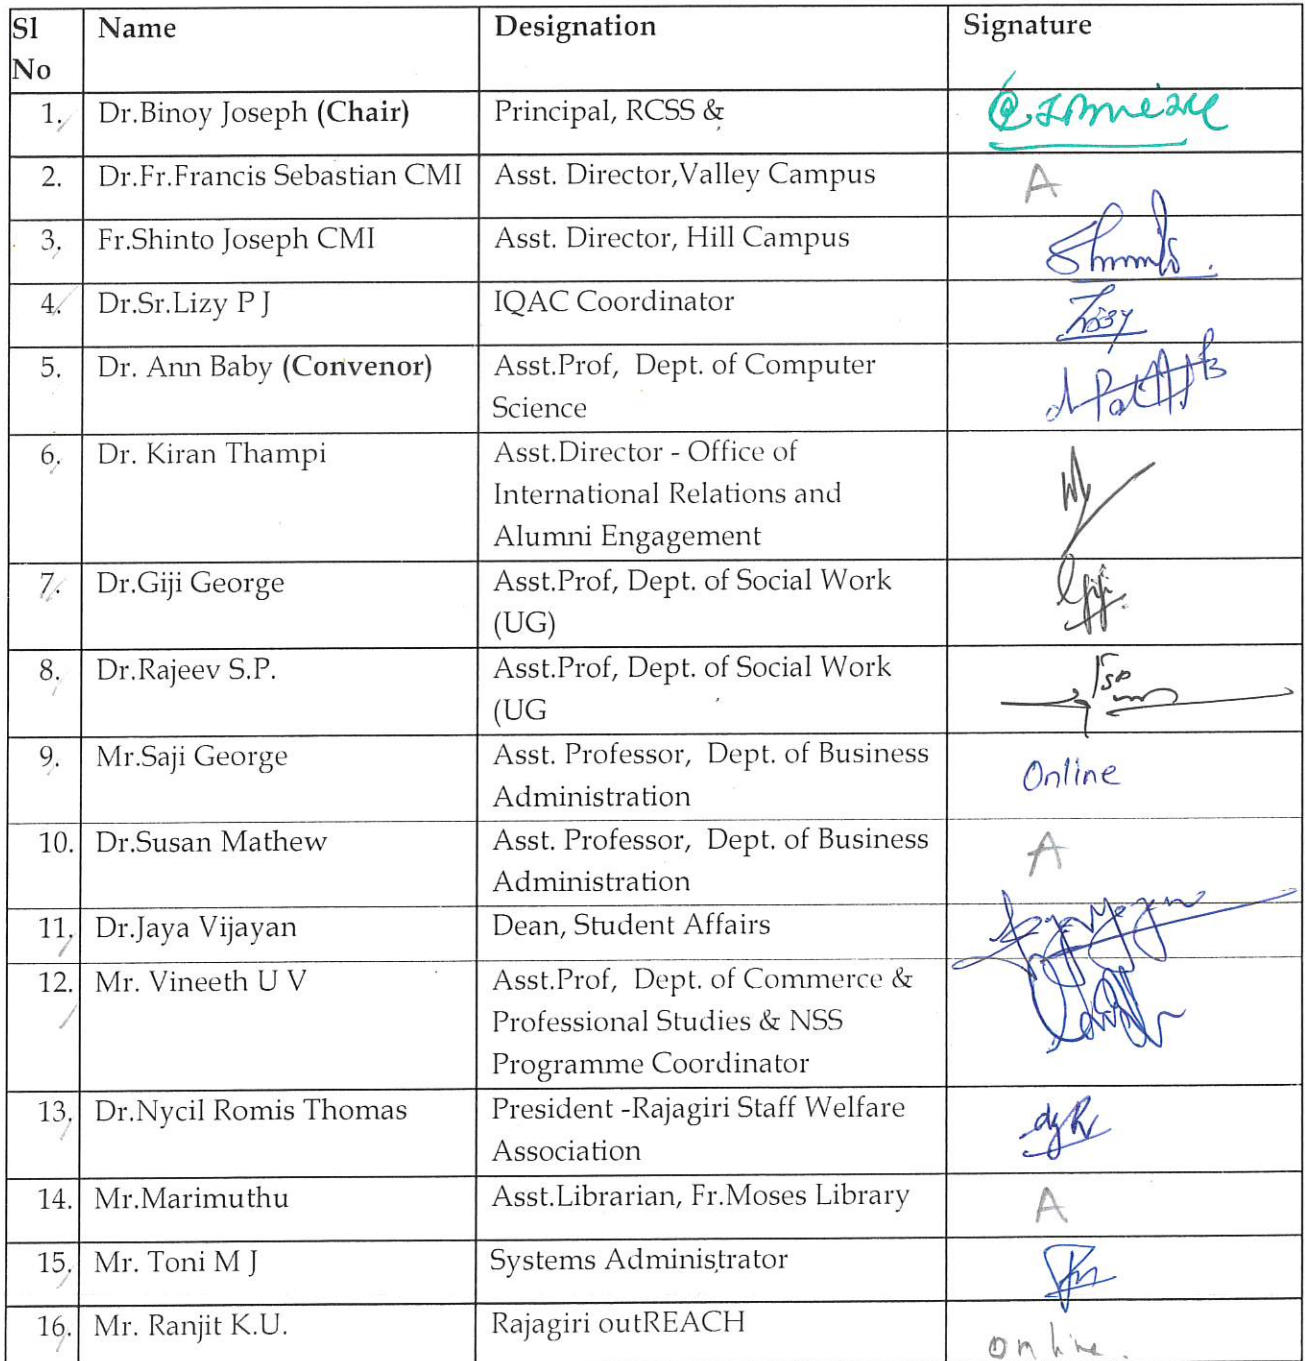 Sl No Name Designation Signature
1. Dr.Binoy Joseph (Chair) Principal, RCSS &
2. Dr.Fr.Francis Sebastian CMI Asst. Director,Valley Campus A
3. Fr.Shinto Joseph CMI Asst. Director, Hill Campus
4. Dr.Sr.Lizy P J IQAC Coordinator
5. Dr. Ann Baby (Convenor) Asst.Prof, Dept. of Computer
Science
6. Dr. Kiran Thampi Asst.Director - Office of
International Relations and
Alumni Engagement
7. Dr.Giji George Asst.Prof, Dept. of Social Work
(UG)
8. Dr.Rajeev S.P. Asst.Prof, Dept. of Social Work
(UG
9. Mr.Saji George Asst. Professor, Dept. of Business
Administration Online
10. Dr.Susan Mathew Asst. Professor, Dept. of Business
Administration A
11. Dr.Jaya Vijayan Dean, Student Affairs
12. Mr. Vineeth U V Asst.Prof, Dept. of Commerce &
Professional Studies & NSS
Programme Coordinator
13. Dr.Nycil Romis Thomas President -Rajagiri Staff Welfare
Association
14. Mr.Marimuthu Asst.Librarian, Fr.Moses Library A
15. Mr. Toni M J Systems Administrator
16. Mr. Ranjit K.U. Rajagiri outREACH online.